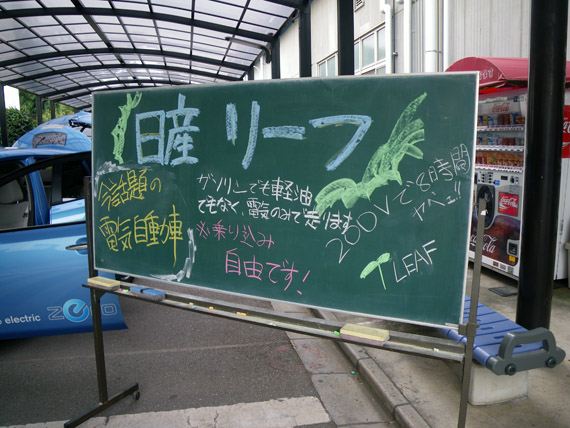 日産 リーフ
今話題の
電気自動車
ガソリンでも軽油
でもなく、電気のみで走ります
※乗り込み
自由です!
200Vで8時間
LEAF
electric
Coca-Cola